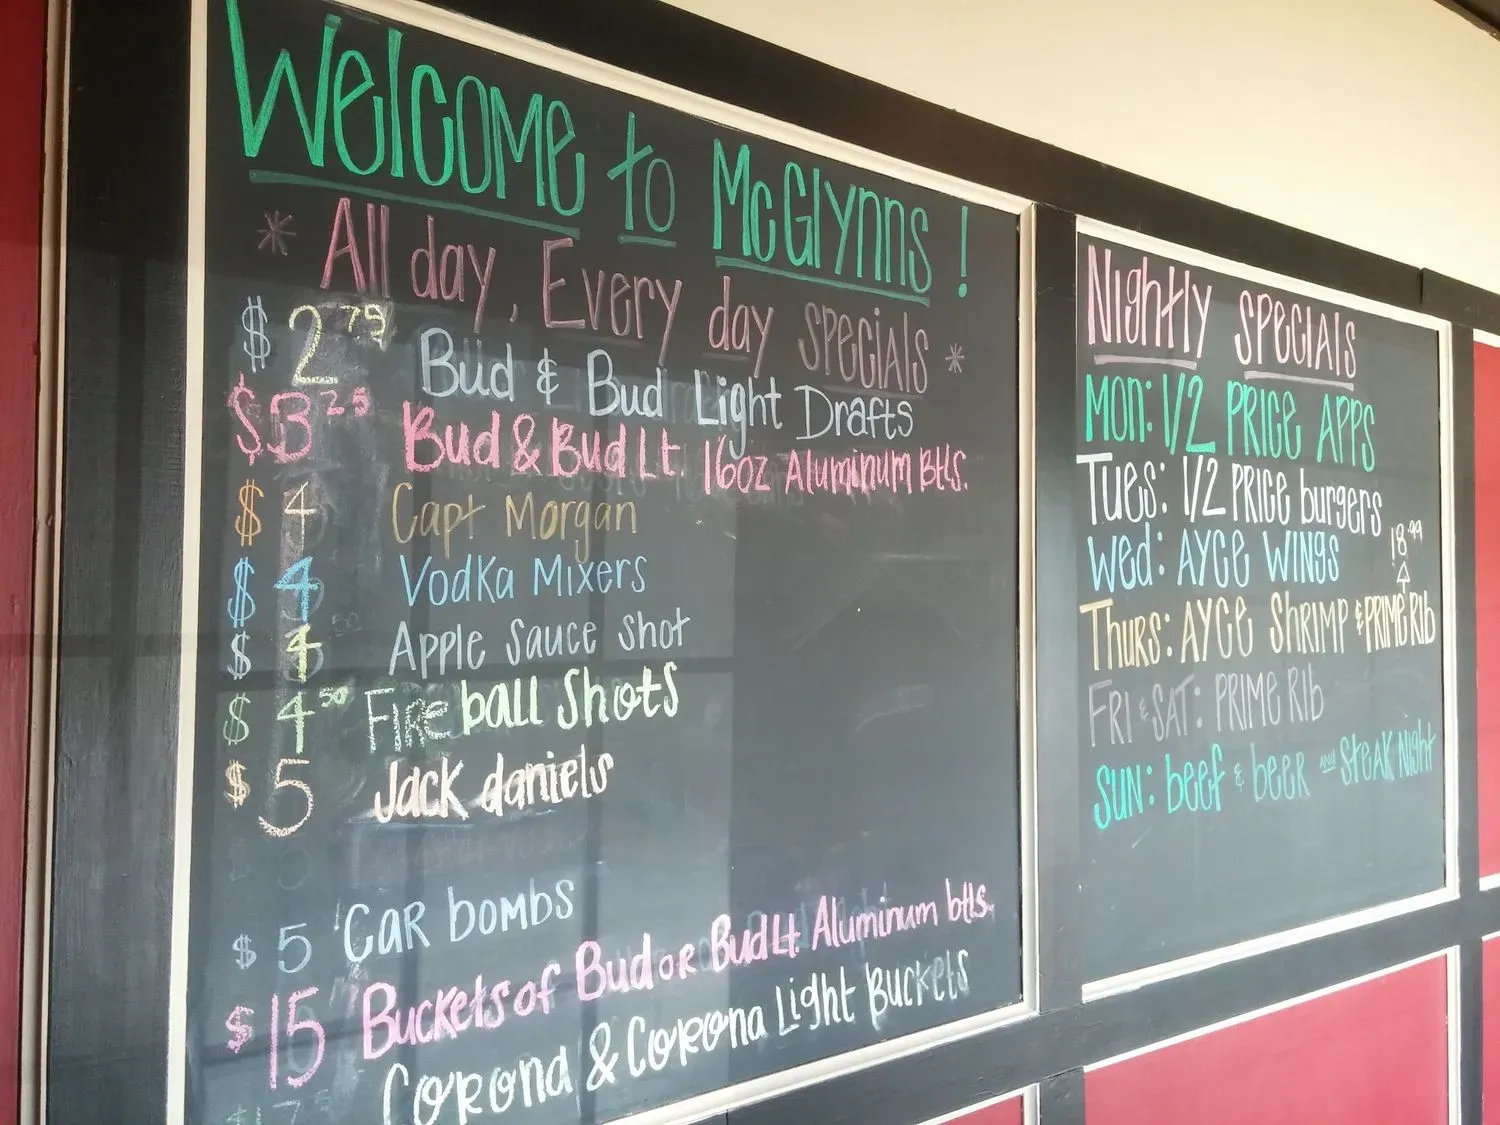 Welcome to McGlynns!
* All day, Every day specials *
$2.79 Bud & Bud Light Drafts
$3.25 Bud & Bud Lt. 16oz Aluminum Btls.
$4 Capt Morgan
$4 Vodka Mixers
$4 Apple Sauce Shot
$4.50 Fireball Shots
$5 Jack daniels
$5 Car bombs
$15 Buckets of Bud or Bud Lt. Aluminum btls.
Corona & Corona Light Buckets
Nightly Specials
Mon: 1/2 PRICE APPS
Tues: 1/2 PRICE burgers
Wed: AYCE WINGS
18.99
Thurs: AYCE Shrimp & PRIME Rib
FRI & SAT: PRIME Rib
SUN: beef & beer AND Steak Night